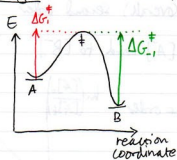 ΔG₁‡
E
‡
ΔG₋₁‡
A
B
reaction
coordinate